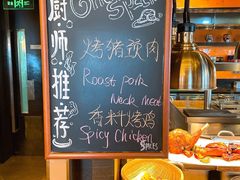 厨师推荐
烤猪颈肉
Roast pork
Neck meat
香料烤鸡
Spicy Chicken
SPICES